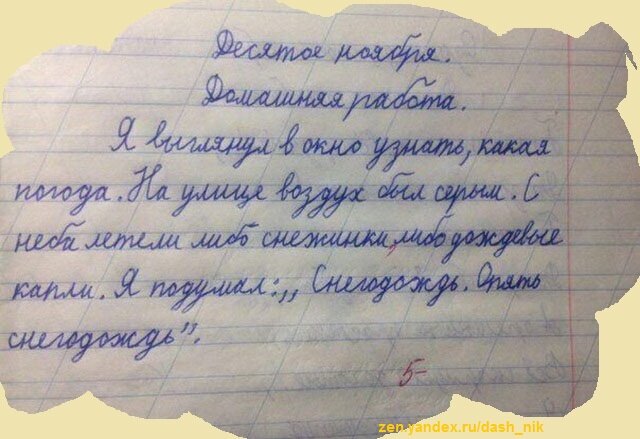 Десятое ноября.
Домашняя работа.
Я выглянул в окно узнать, какая
погода. На улице воздух был серым. С
неба летели либо снежинки, либо дождевые
капли. Я подумал: ,, Снегодождь. Опять
снегодождь".
5-
zen.yandex.ru/dash_nik